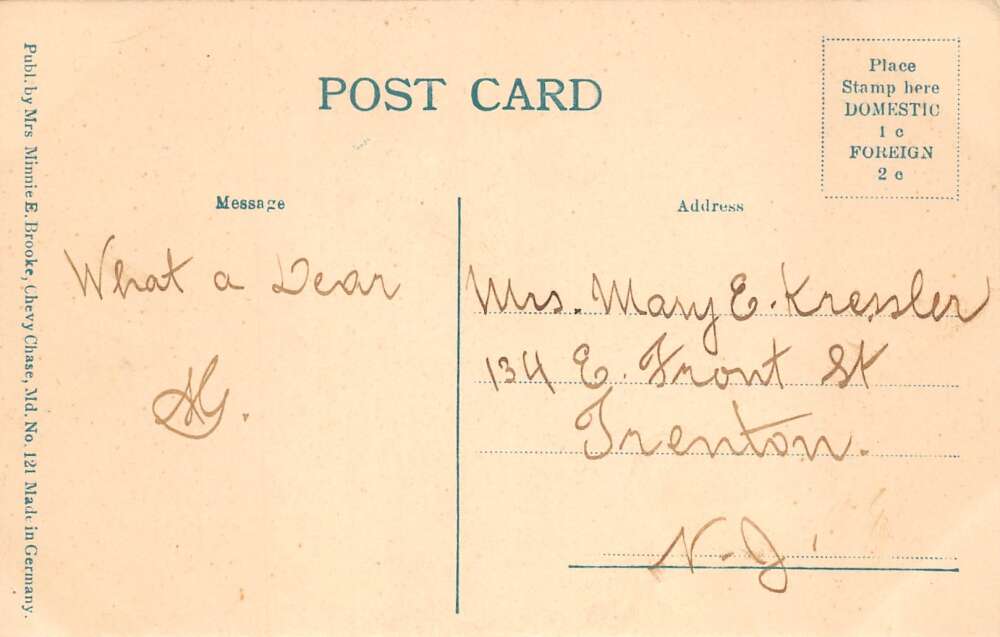 POST CARD
Place
Stamp here
DOMESTIC
1 c
FOREIGN
2 c
Message
Address
What a Dear
Mrs. Mary E. Kressler
134 E. Front St
Trenton.
N-J
Publ. by Mrs Minnie E. Brooke, Chevy Chase, Md. No. 121 Made in Germany.